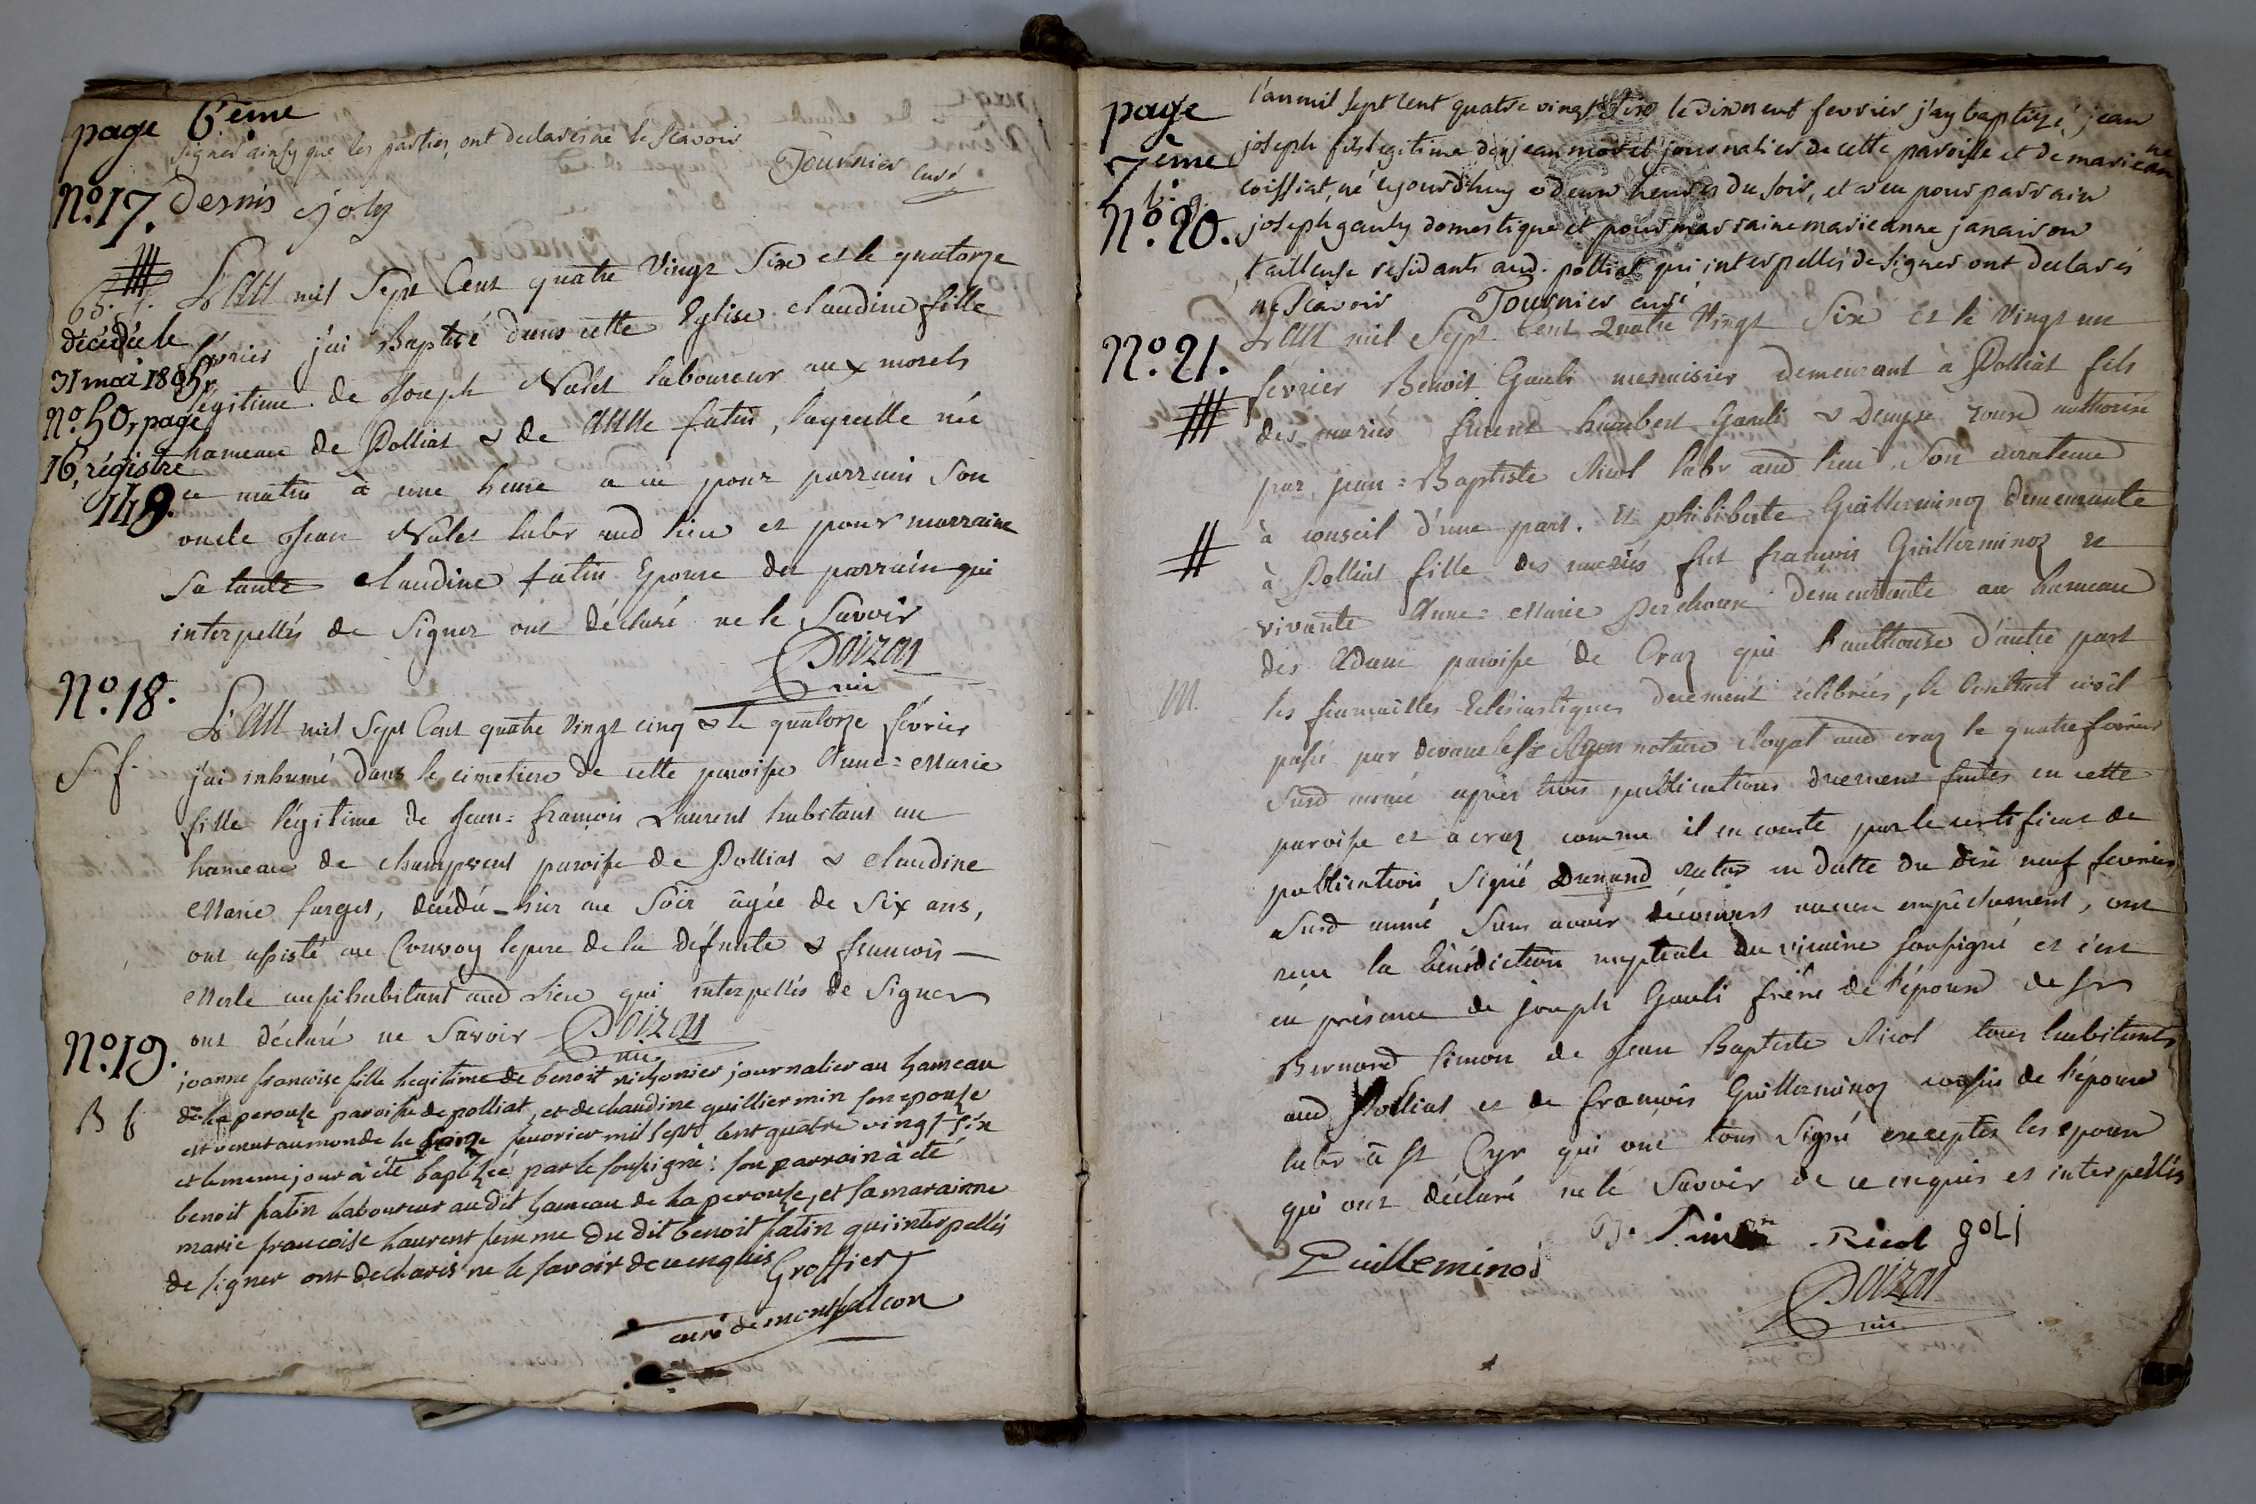 page 6ème
signer ainsy que les parties, ont declarés ne le scavoir
Tournier curé
No. 17. Denis Joly
B. f.
décédée le
31 mai 1865,
No. 50, page
16, régistre
148.
L'an mil Sept Cent quatre Vingt Six et le quatorze
fevrier j'ai Baptisé dans cette Eglise claudine fille
légitime de Joseph Nallet laboureur aux morels
hameau de Polliat & de Anne fatin, laquelle née
ce matin à une heure a eu pour parrain Son
oncle Jean Nallet labr aud lieu et pour marraine
Sa tante claudine fatin Epouse du parrain qui
interpellés de Signer ont déclaré ne le Savoir
Doizat
vic
No. 18.
S. f.
L'an mil Sept Cent quatre Vingt cinq & le quatorze février
j'ai inhumé dans le cimetiere de cette paroisse Anne=Marie
fille légitime de Jean=françois Laurent habitant au
hameau de champvent paroisse de Polliat & claudine
Marie farget, décédé hier au Soir âgée de Six ans,
ont assisté au Convoy le pere de la défunte & francois
Merle aussi habitant aud Lieu qui interpellés de Signer
ont déclaré ne Savoir Doizat
vic
No. 19.
B f
joanne francoise fille legitime de benoit nichonier journalier au hameau
de la perouse paroisse de polliat, et de claudine guilliermin son epouse
est venue au monde le seize fevorier mil sept cent quatre vingt-six
et le meme jour à été baptisée par le soussigné: son parrain à été
benoit fatin laboureur au dit hameau de la perouse, et sa marainne
marie francoise laurent femme du dit benoit fatin qui interpellés
de signer ont déclarés ne le savoir de ce enquis Groffier
curé de montfalcon
page
7ème
No. 20.
l'an mil sept cent quatre vingt six le dix neuf fevrier j'ay baptizé jean
joseph fils legitime de jean moret journalier de cette paroisse et de marieanne
coissiat, né aujourdhuy a deux heures du soir, et a eu pour parrain
joseph gauly domestique et pour marraine marieanne janairon
tailleuse residants aud. polliat qui interpellés de signer ont declarés
ne scavoir Tournier curé
No. 21.
M.
L'an mil Sept Cent Quatre Vingt Six Et le Vingt un
fevrier Benoit Gauli menuisier demeurant à Polliat fils
des mariés furent humbert Gauli & Denyse roux authorisé
par jean=Baptiste Ricol labr aud lieu Son curateur
à conseil d'une part. Et philiberte Guilleminoz demeurante
à Polliat fille des mariés fut francois Guilleminoz et
vivante Anne=Marie Perchoux demeurante au hameau
des Adam paroisse de Craz qui l'authorise d'autre part
les fiancailles Ecclésiastiques duement célébrées, le Contract civil
passé par devant le Sr notaire Royal aud craz le quatre fevrier
Susd année après trois publications duement faites en cette
paroisse et a craz comme il en conste par le certificat de
publication Signé Dunand en datte du dix neuf fevrier
Susd année Sans avoir découvert aucun empêchement, ont
recu la bénédiction nuptiale du vicaire soussigné et c'est
en présence de joseph Gauli frère de l'époux de Sr
Bernard Simon de Jean Baptiste Ricol tous habitants
aud Polliat et de francois Guilleminoz cousin de l'épouse
labr à St Cyr qui ont tous Signé exceptés les époux
qui ont déclaré ne le Savoir de ce enquis et interpellés
Guilleminod B. Simon Ricol goli
Doizat
vic